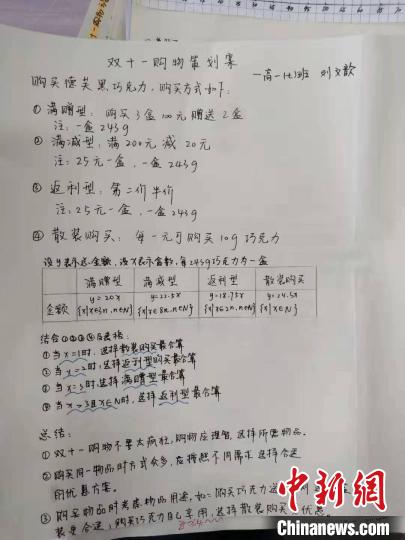 双十一购物策划案
一高一(七)班 刘文歆
购买德芙黑巧克力，购买方式如下：
① 满赠型：购买3盒100元赠送2盒
注：一盒243g
② 满减型：满200元减20元
注：25元一盒，一盒243g
③ 返利型：第二价半价
注：25元一盒，一盒243g
④ 散装购买：每一元可购买10g巧克力
设y表示总金额，设x表示盒数，每243g巧克力为一盒
满赠型 满减型 返利型 散装购买
金额 y=20x y=22.5x y=18.75x y=24.3x
{x|x∈5n,n∈N} {x|x∈8n,n∈N} {x|x∈2n,n∈N} {x|x∈N}
结合①②③④及表格：
①当x=1时，选择散装购买最合算
②当x=2时，选择返利型购买最合算
③当x=3时，选择满赠型最合算
④当x>3且x∈N时，选择返利型最合算
总结：
① 双十一购物不要太疯狂，购物应理智，选择所需物品。
② 购买同一物品时方式众多，应按照不同需求选择合适
的优惠方案。
③ 购买物品时考虑物品用途，如：购买巧克力送
装更合适；购买巧克力自己享用，选择散装购买 优惠。
中新网
www.chinanews.com